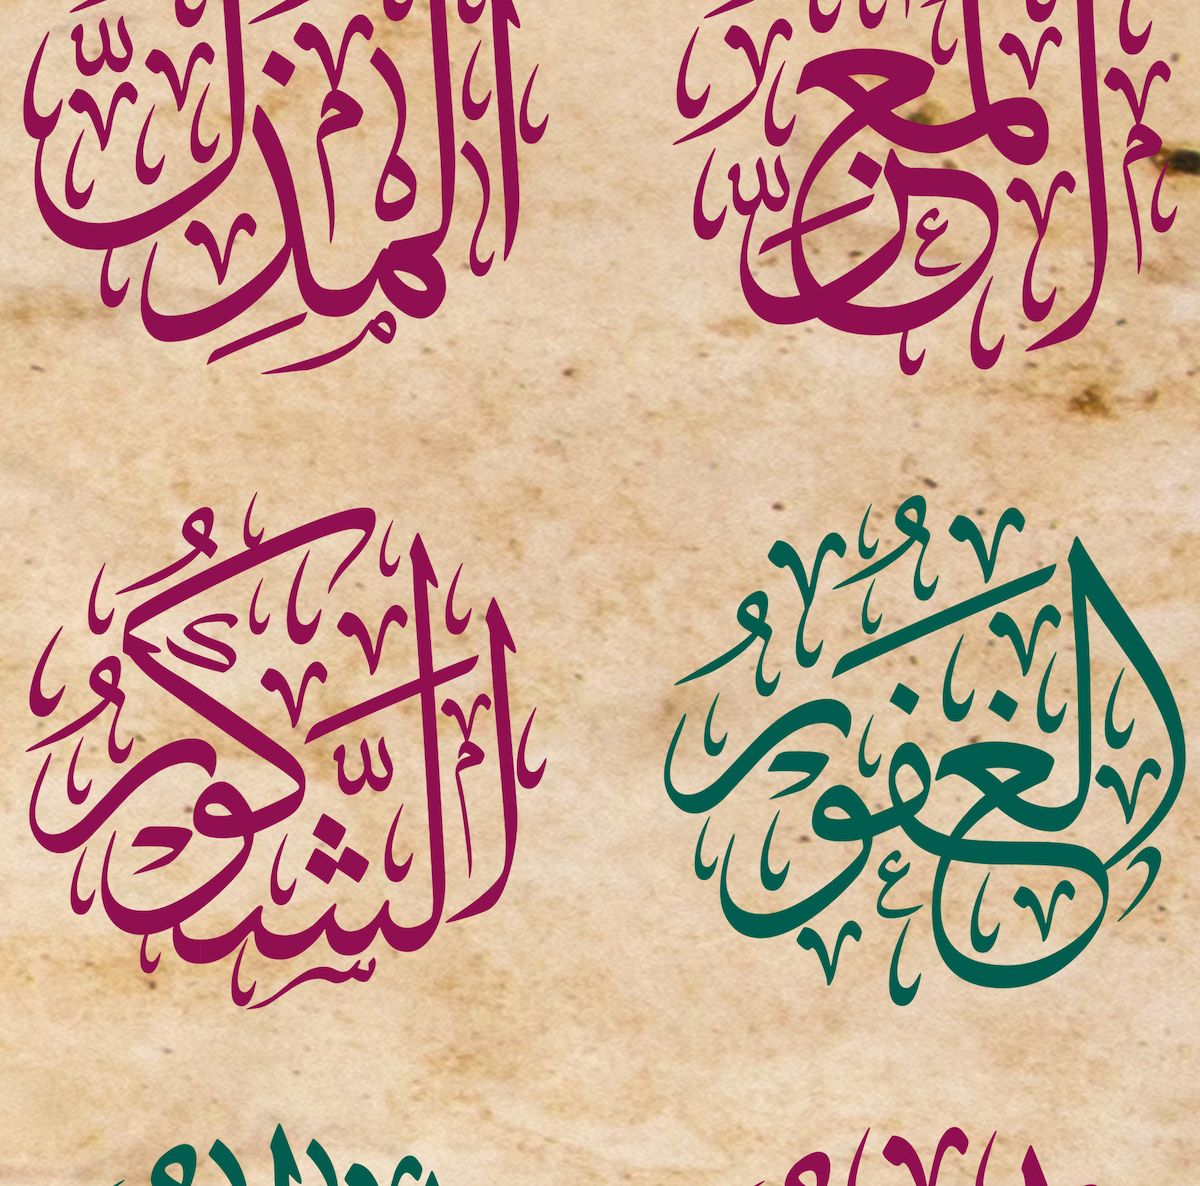 المعز
المذل
الغفور
الشكور